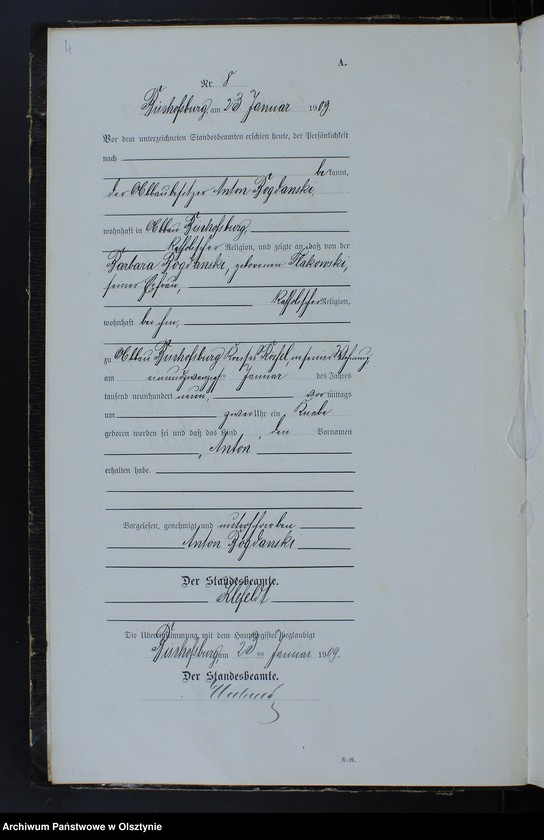 4
A.
Nr. 8
Bischofsburg, am 23 Januar 1909.
Vor dem unterzeichneten Standesbeamten erschien heute, der Persönlichkeit
nach
bekannt,
der Abbaubesitzer Anton Bogdanski
wohnhaft in Abbau Bischofsburg,
katholischer Religion, und zeigte an, daß von der
Barbara Bogdanski, geborenen
seiner Ehefrau,
katholischer Religion,
wohnhaft bei ihm,
zu Abbau Bischofsburg Kreises Rößel, in seiner Wohnung
am einundzwanzigsten Januar des Jahres
tausend neunhundert neun, vormittags
um zwei Uhr ein Knabe
geboren worden sei und daß das Kind den Vornamen
Anton
erhalten habe.
Vorgelesen, genehmigt und unterschrieben
Anton Bogdanski
Der Standesbeamte.
Klefeldt
Die Übereinstimmung mit dem Hauptregister beglaubigt
Bischofsburg, am 23 ten Januar 1909.
Der Standesbeamte.
R.-R.
Archiwum Państwowe w Olsztynie